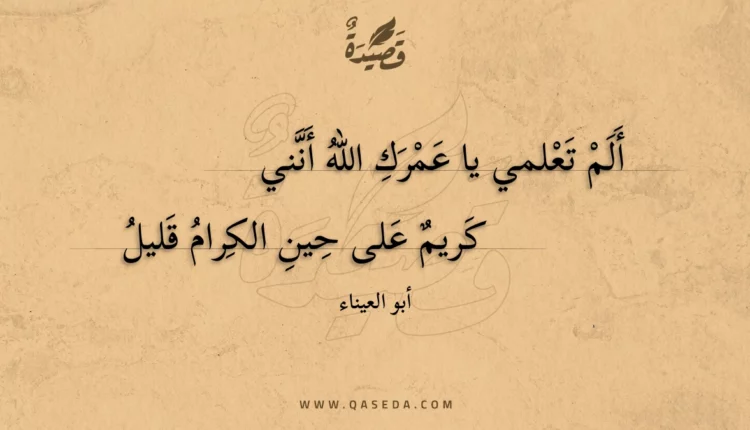 قَصِيدَةٌ
أَلَمْ تَعْلمي يا عَمْرَكِ اللهُ أَنَّني
كَريمٌ عَلى حِينِ الكِرامُ قَليلُ
أبو العيناء
WWW.QASEDA.COM